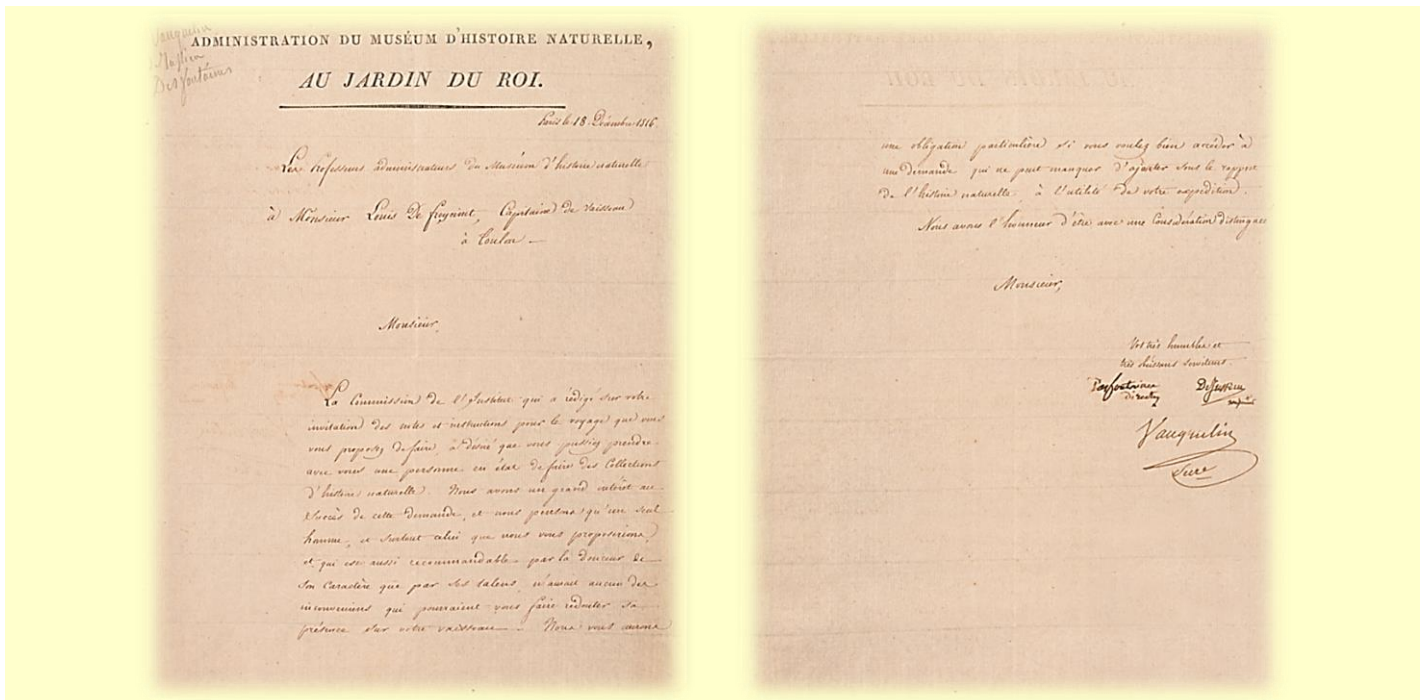 Vauquelin
Desfontaines
ADMINISTRATION DU MUSÉUM D'HISTOIRE NATURELLE,
AU JARDIN DU ROI.
Paris le 18 Décembre 1816.
Les Professeurs administrateurs du Muséum d'histoire naturelle
à Monsieur Louis De freycinet, Capitaine de vaisseau
à Toulon —
Monsieur,
La Commission de l'Institut qui a rédigé sur votre
invitation des notes et instructions pour le voyage que vous
vous proposez de faire, a désiré que vous pussiez prendre
avec vous une personne en état de faire des Collections
d'histoire naturelle. Nous avons un grand intérêt au
succès de cette demande, et nous pensons qu'un seul
homme, et surtout celui que nous vous proposerions,
et qui est aussi recommandable par la douceur de
son caractère que par ses talens, n'aurait aucun des
inconveniens qui pourraient vous faire redouter sa
présence sur votre vaisseau. Nous vous aurons
une obligation particulière si vous voulez bien accéder à
une demande qui ne peut manquer d'ajouter sous le rapport
de l'histoire naturelle à l'utilité de votre expédition.
Nous avons l'honneur d'être avec une Considération distinguée
Monsieur,
Vos très humbles et
très obéissans serviteurs.
Desfontaines Dejussieu
directeur
Vauquelin
Secre